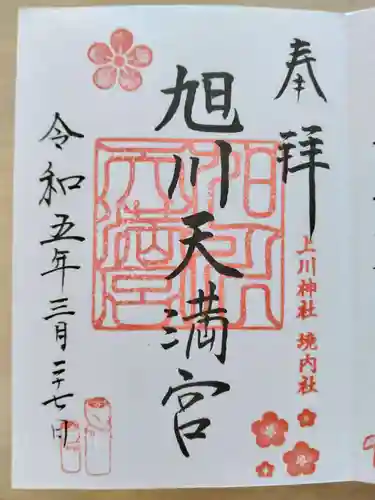 奉拝
上川神社 境内社
旭川天満宮
令和五年三月二十七日